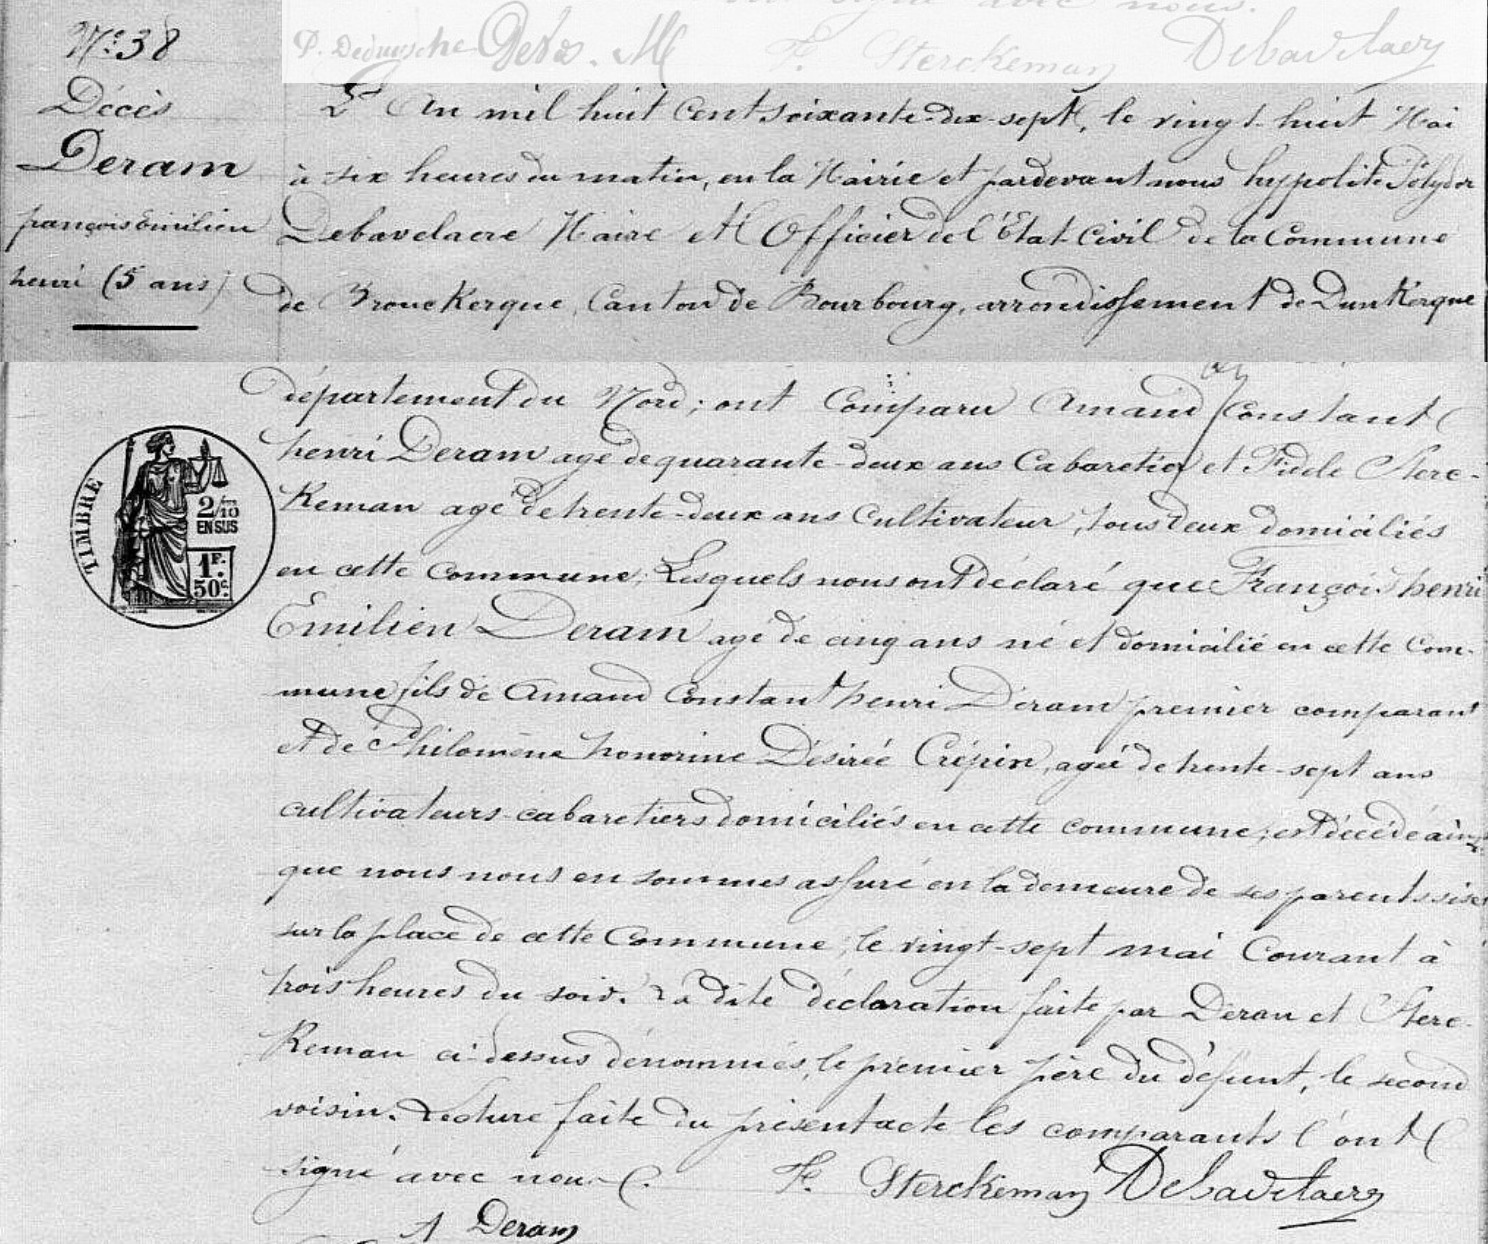 signé avec nous.
P. Deduysche F. Sterckeman Debavelaere
N° 38
Décès
Deram
françois Emilien
henri (5 ans)
L'An mil huit cent soixante-dix-sept, le vingt-huit Mai
à six heures du matin, en la Mairie et pardevant nous hypolite Polydor
Debavelaere Maire et Officier de l'Etat-Civil de la Commune
de Brouckerque, Canton de Bourbourg, arrondissement de Dunkerque
département du Nord; ont Comparu Amand Constant
henri Deram agé de quarante-deux ans Cabaretier et Fidèle Sterc-
Keman agé de trente-deux ans Cultivateur, tous deux domiciliés
en cette Commune; Lesquels nous ont déclaré que François henri
Emilien Deram agé de cinq ans né et domicilié en cette Com-
mune fils de Amand Constant henri Deram premier comparant
et de Philomène honorine Désirée Crépin, agée de trente-sept ans
cultivateurs-cabaretiers domiciliés en cette commune; est décédé ainsi
que nous nous en sommes assuré en la demeure de ses parents sise
sur la place de cette Commune, le vingt-sept mai Courant à
trois heures du soir. La dite déclaration faite par Deram et Sterc-
Keman ci-dessus dénommés, le premier père du défunt, le second
voisin. Lecture faite du présent acte les comparants l'ont
signé avec nous.
F. Sterckeman Debavelaere
A Deram
TIMBRE
2/10
EN SUS
1F.
50c.